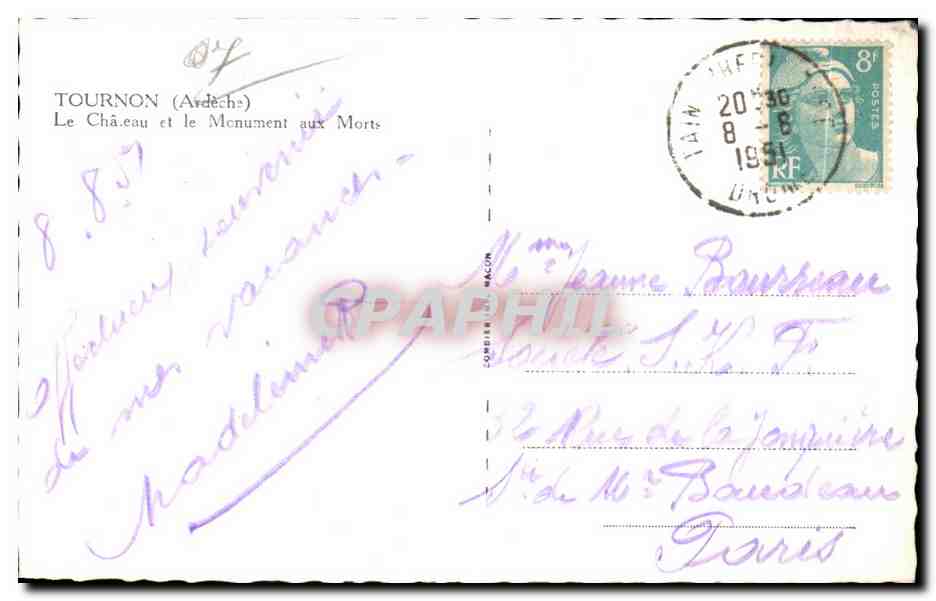 07
TOURNON (Ardèche)
Le Château et le Monument aux Morts
8.8.51
Affectueux souvenir
de mes vacances
Madeleine
COMBIER IMP. MACON
CPAPHIL
8f
POSTES
RF
TAIN
20 30
8 - 8
1951
DROME
Mme Jeanne Bourreau
Société S. K. F.
32 Rue de la Jonquière
Sce de Mr Baudeau
Paris